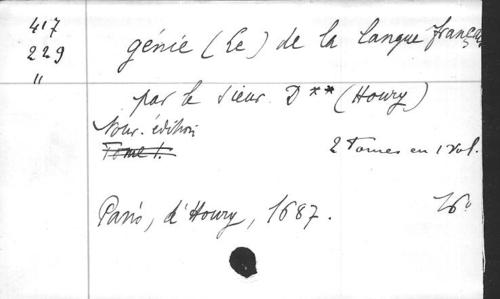 417
229
"
génie (Le) de la langue françai
par le sieur D** (Houry)
Nouv. édition
Tome 1.
2 Tomes en 1 vol.
Paris, d'Houry, 1687.